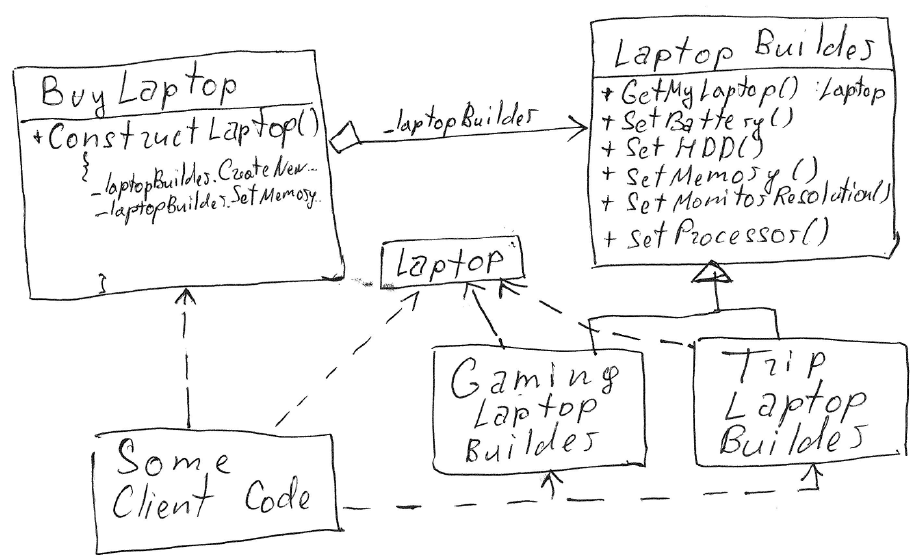 Buy Laptop
+ Construct Laptop()
{
_laptopBuilder.CreateNew...
_laptopBuilder.SetMemory..
}
_laptopBuilder
Laptop Builder
+ GetMyLaptop() : Laptop
+ SetBattery()
+ Set HDD()
+ SetMemory()
+ SetMonitorResolution()
+ SetProcessor()
Laptop
Gaming
Laptop
Builder
Trip
Laptop
Builder
Some
Client Code